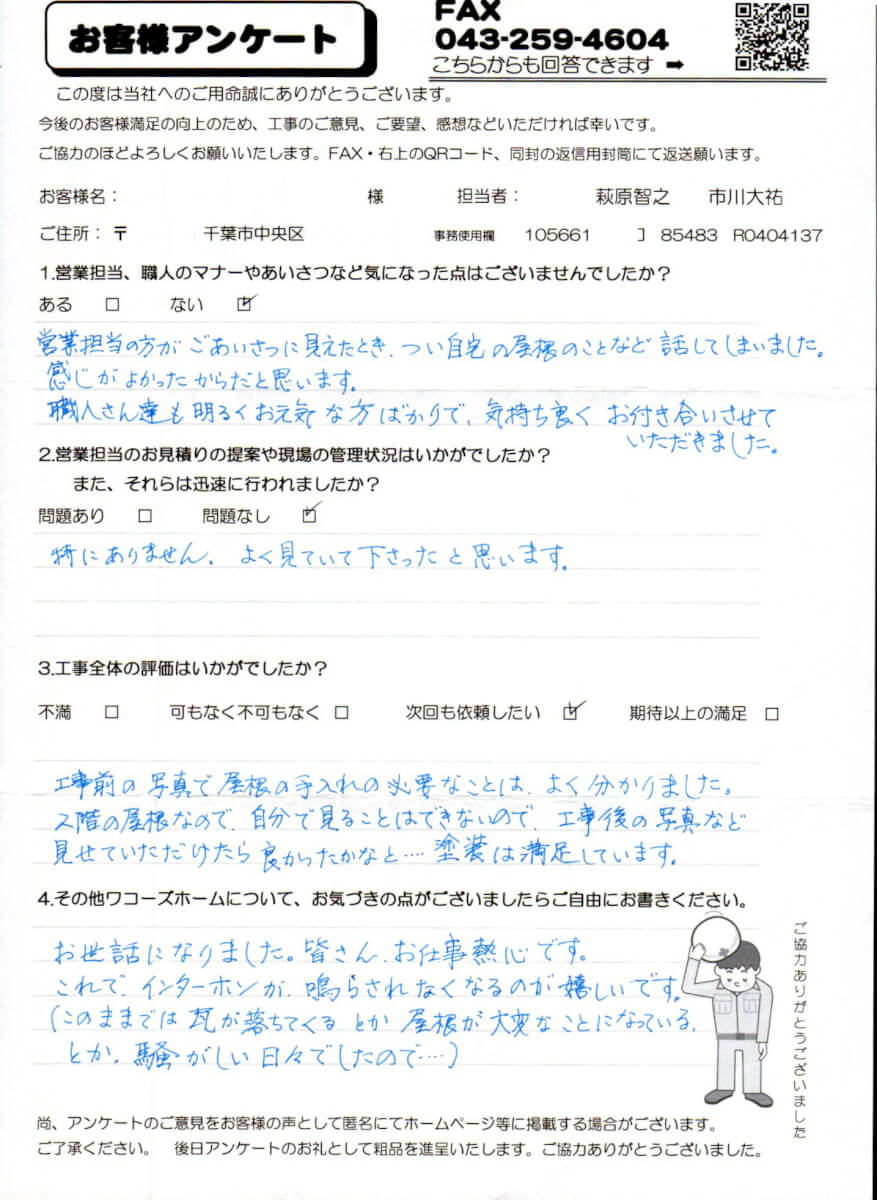 お客様アンケート
FAX
043-259-4604
こちらからも回答できます ➡
この度は当社へのご用命誠にありがとうございます。
今後のお客様満足の向上のため、工事のご意見、ご要望、感想などいただければ幸いです。
ご協力のほどよろしくお願いいたします。FAX・右上のQRコード、同封の返信用封筒にて返送願います。
お客様名： 様 担当者： 萩原智之 市川大祐
ご住所：〒 千葉市中央区 事務使用欄 105661 ] 85483 R0404137
1.営業担当、職人のマナーやあいさつなど気になった点はございませんでしたか？
ある □ ない ☑
営業担当の方がごあいさつに見えたとき、つい自宅の屋根のことなど話してしまいました。
感じがよかったからだと思います。
職人さん達も明るくお元気な方ばかりで、気持ち良くお付き合いさせて
いただきました。
2.営業担当のお見積りの提案や現場の管理状況はいかがでしたか？
また、それらは迅速に行われましたか？
問題あり □ 問題なし ☑
特にありません。よく見ていて下さったと思います。
3.工事全体の評価はいかがでしたか？
不満 □ 可もなく不可もなく □ 次回も依頼したい ☑ 期待以上の満足 □
工事前の写真で屋根の手入れの必要なことは、よく分かりました。
2階の屋根なので、自分で見ることはできないので、工事後の写真など
見せていただけたら良かったかなと…. 塗装は満足しています。
4.その他ワコーズホームについて、お気づきの点がございましたらご自由にお書きください。
お世話になりました。皆さん、お仕事熱心です。
これで、インターホンが、鳴らされなくなるのが嬉しいです。
（このままでは瓦が落ちてくるとか屋根が大変なことになっている、
とか。騒がしい日々でしたので….）
ご協力ありがとうございました
尚、アンケートのご意見をお客様の声として匿名にてホームページ等に掲載する場合がございます。
ご了承ください。 後日アンケートのお礼として粗品を進呈いたします。ご協力ありがとうございました。